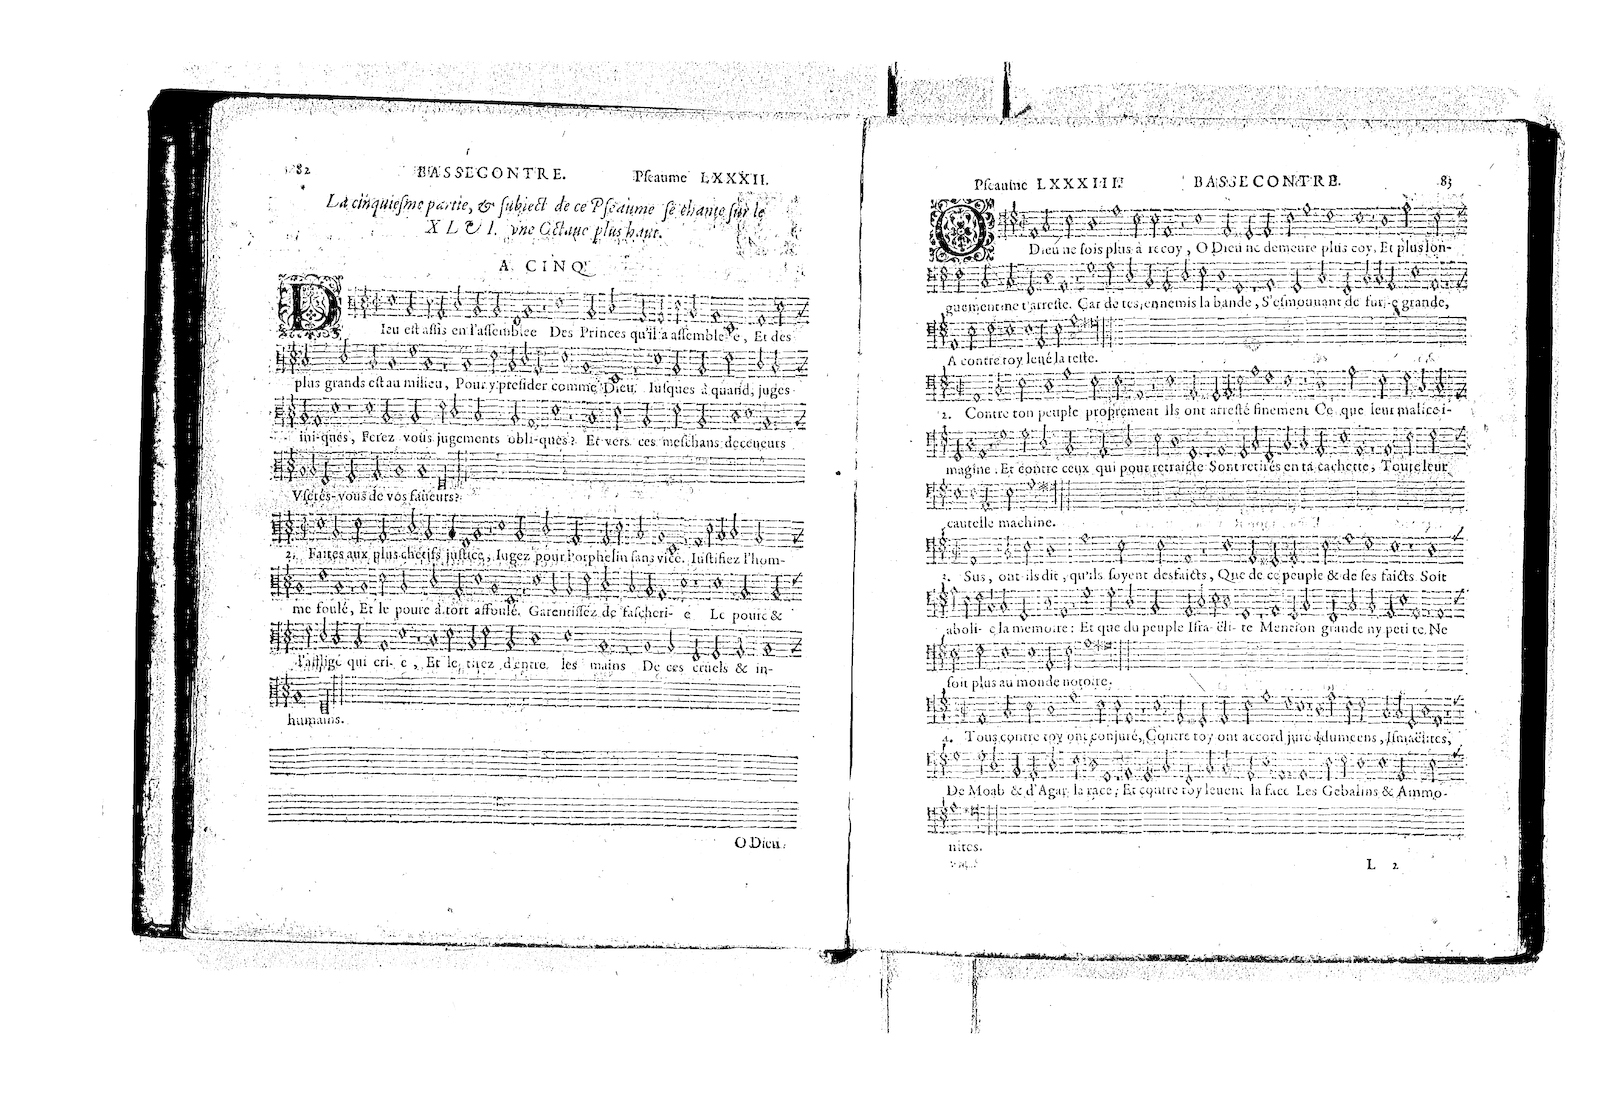 82 BASSECONTRE. Pseaume LXXXII.
La cinquiesme partie, & subiect de ce Pseaume se chante sur le
XLVI. vne Octaue plus haut.
A CINQ
DIeu est assis en l'assemblee Des Princes qu'il a assemble-e, Et des
plus grands est au milieu, Pour y presider comme Dieu. Iusques à quand, iuges
ini-ques, Ferez vous iugements obli-ques? Et vers ces meschans deceueurs
Vserés-vous de vos faueurs?
2. Faites aux plus chetifs iustice, Iugez pour l'orphelin sans vice. Iustifiez l'hom-
me foulé, Et le poure à tort affoulé. Garentissez de fascheri- e Le poure &
l'affligé qui cri- e, Et le tirez d'entre les mains De ces cruels & in-
humains.
O Dieu
Pseaume LXXXIII. BASSECONTRE. 83
O Dieu ne sois plus à recoy, O Dieu ne demeure plus coy, Et plus lon-
guement ne t'arreste. Car de tes ennemis la bande, S'esmouuant de furi-e grande,
A contre toy leué la teste.
2. Contre ton peuple proprement Ils ont arresté finement Ce que leur malice i-
magine. Et contre ceux qui pour retraicte Sont retirés en ta cachette, Toute leur
cautelle machine.
3. Sus, ont-ils dit, qu'ils soyent desfaicts, Que de ce peuple & de ses faicts Soit
aboli- e la memoire: Et que du peuple Isra-ëli-te Mention grande ny petite. Ne
soit plus au monde notoire.
4. Tous contre toy ont coniuré, Contre toy ont accord iuré Idumeens, Ismaëlites,
De Moab & d'Agar la race; Et contre toy leuent la face Les Gebalins & Ammo-
nites.
L 2